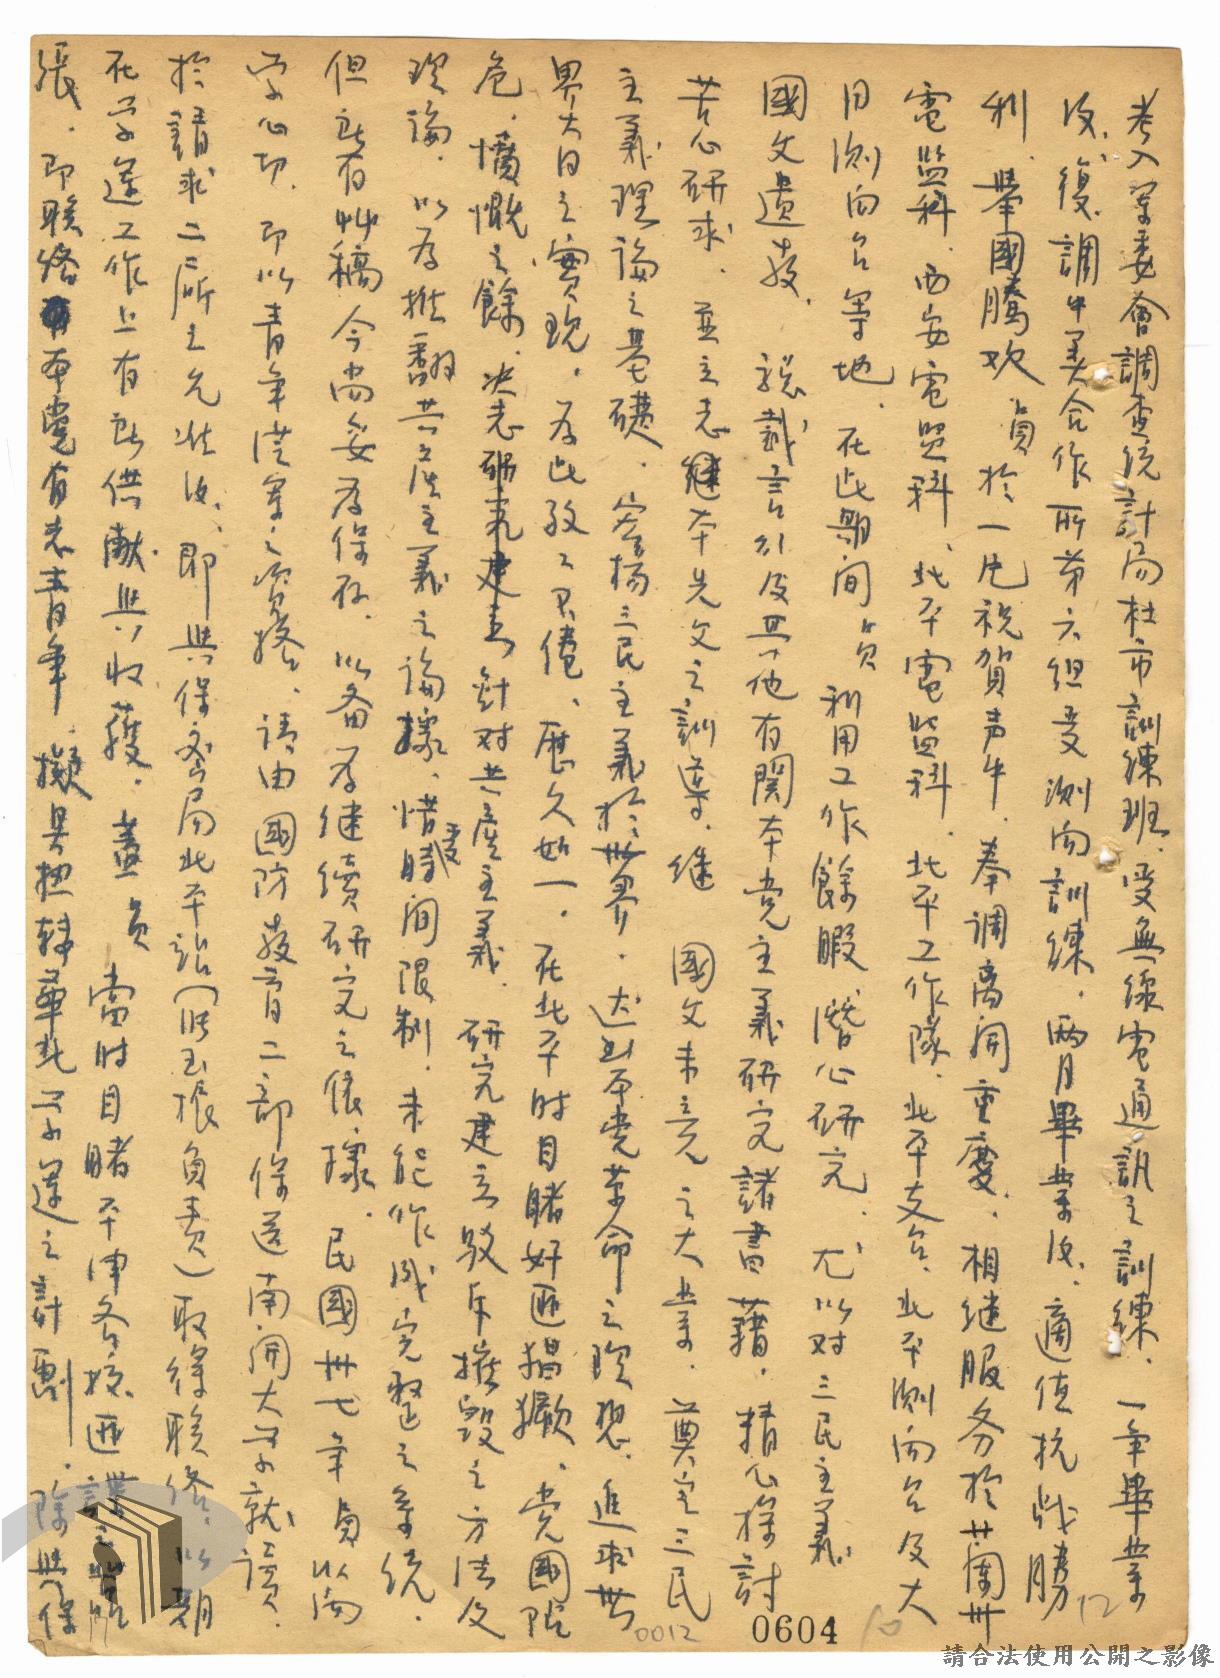 考入軍委會調查統計局杜市訓練班、受無線電通訊之訓練。一年畢業
後、復調中美合作所第六組受測向訓練。兩月畢業後、適值抗战勝
利、舉國騰欢、員於一片祝賀声中、奉調离開重慶、相継服务於蘭州
電监科、西安電监科、北平電监科、北平工作隊、北平支台、北平測向台及大
同測向台等地、在此期间員利用工作餘暇、潛心研究、尤以对三民主義
國父遺教、 言行及其他有関本党主義研究諸書藉、精心探討
苦心研求、並立志継本先父之訓導、継 國父未竟之大業、奠定三民
主義理論之基礎、宏揚三民主義於世界、达到本党革命之理想、追求世
界大同之實現、為此孜孜不倦、歷久如一、在北平時目睹奸匪猖獗、党國阽
危、憤慨之餘、決志研究建立針对共產主義、研究建立駁斥摧毀之方法及
理論、以為推翻共產主義之論據、惜受時间限制、未能作成完整之系統、
但訖有草稿今尚妥為保存、以备為继續研究之依據、民國卅七年員以向
学心切、即以青年從軍之資格、請由國防教育二部保送南開大学就讀、
於請求二所之允准後、即與保密局北平站(附玉振負責)取得联络、以期
在学運工作上有所供献與收獲、盖員當时目睹平津各校匪諜之
張、即联络本党有志青年、擬具扭轉華北学運之計劃、除與保
0604
0012
12
10
請合法使用公開之影像